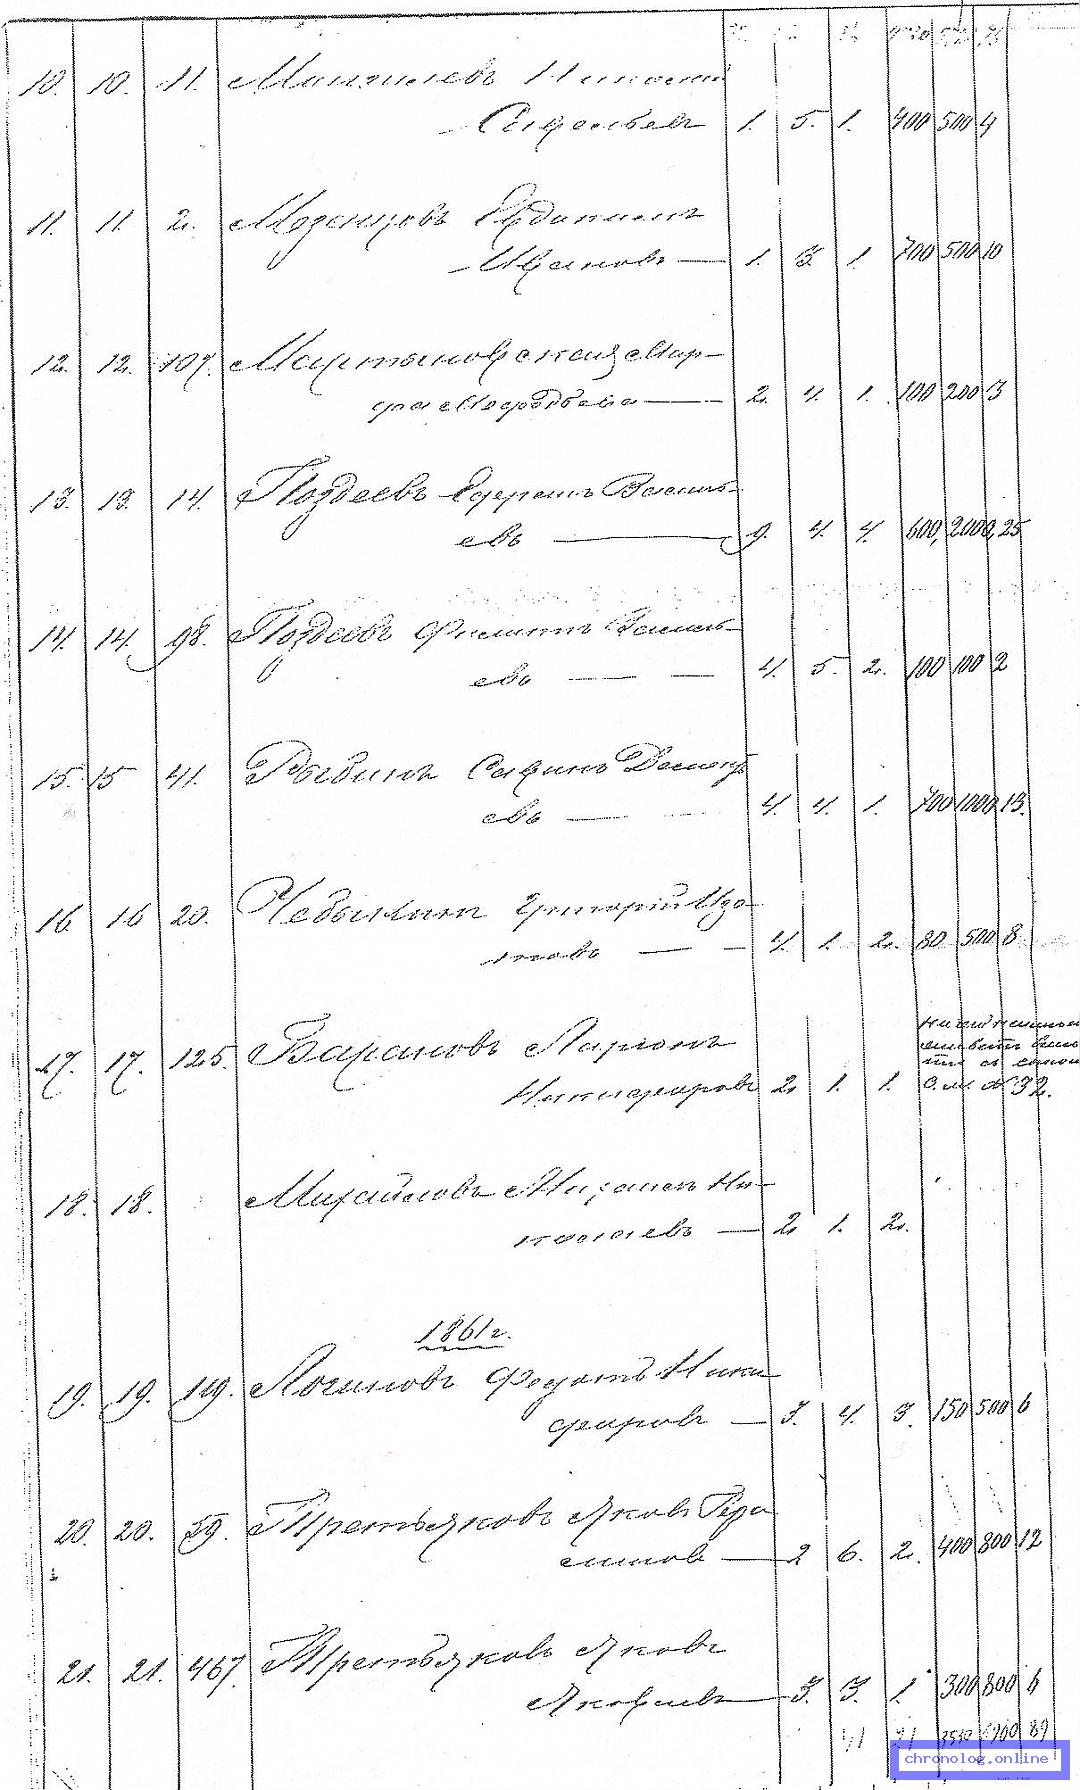 10. 10. 11. Мингилевъ Николай
Савельевъ 1. 5. 1. 400 500 4
11. 11. 2. Мозенцовъ Евдокимъ
Ивановъ — 1. 3. 1. 700 500 10
12. 12. 107. Мартыновская Мар-
фа Мефодьева — 2. 4. 1. 100 200 3
13. 13. 14. Поздеевъ Ефремъ Василь-
евъ — 9. 4. 4. 600, 2000, 25
14. 14. 98. Поздеевъ Филиппъ Василь-
евъ — — 4. 5. 2. 100 100 2
15. 15 41. Рыбинъ Савинъ Дементь
евъ — 4. 4. 1. 700 1000 13.
16. 16 20. Чебыкинъ Григорий Ива-
новъ — - 4. 1. 2. 80 500 8
17. 17. 125. Барановъ Ларионъ
Никифоровъ 2. 1. 1.
О. м. № 32.
18. 18. Михайловъ Михаилъ Ни-
колаевъ — 2. 1. 2.
1861 г.
19. 19. 119. Логиновъ Федотъ Ники
форовъ — 3. 4. 3. 150 500 6
20. 20. 59. Третьяковъ Яковъ Гера
симовъ — 2 6. 2. 400 800 12
21. 21. 467. Третьяковъ Яковъ
Яковлевъ — 3. 3. 1. 300 800 6
89
chronolog.online